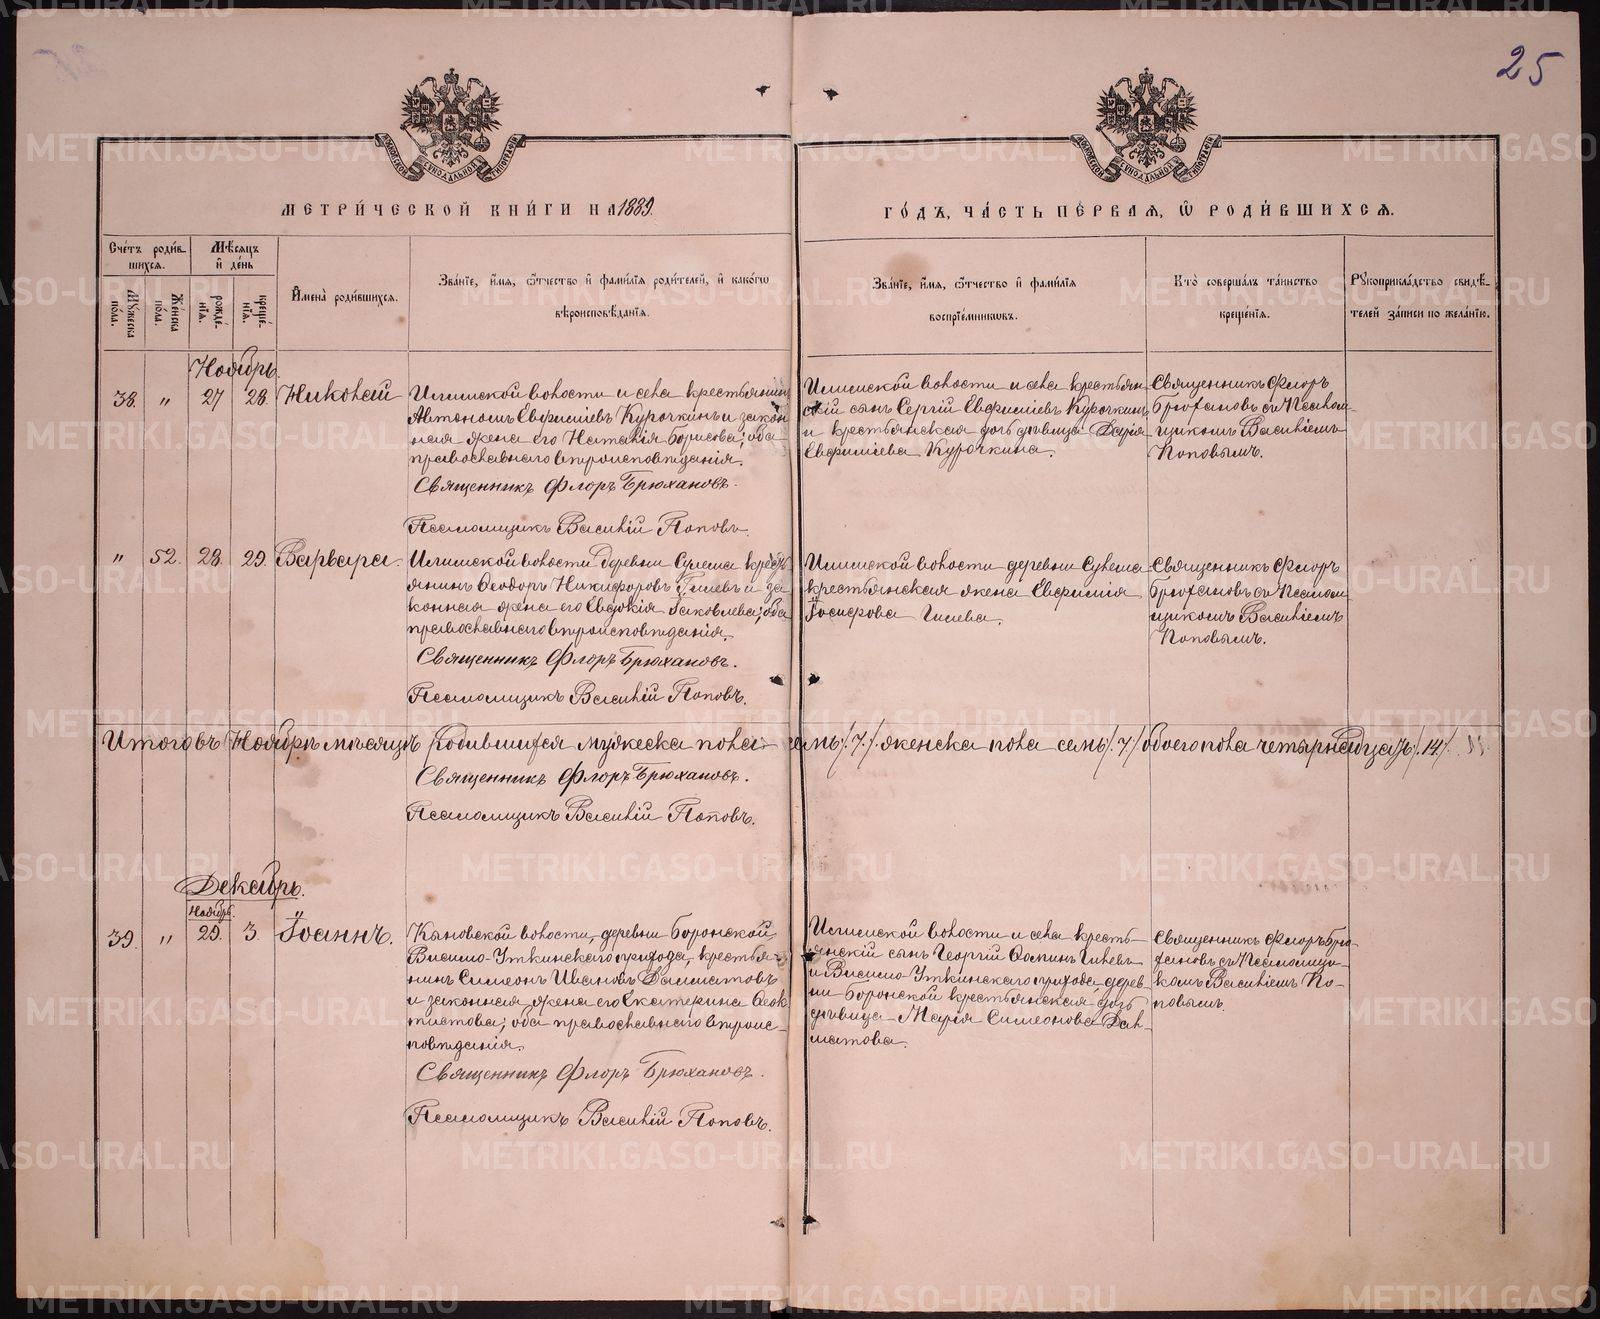 25
МОСКОВСКОЙ СѴНОДАЛЬНОЙ ТИПОГРАФІИ
МОСКОВСКОЙ СѴНОДАЛЬНОЙ ТИПОГРАФІИ
МЕТРИ́ЧЕСКОЙ КНИ́ГИ НА 1889.
ГО́ДЪ, ЧА́СТЬ ПЕ́РВАЯ, Ѽ РОДИ́ВШИХСЯ.
Сче́тъ роди́в-
шихся.
Мѣ́сяцъ
и́ де́нь
Мꙋжеска
по́ла.
Же́нска
по́ла.
рожде́-
нїя.
креще́-
нїя.
И҆мена̀ роди́вшихся.
Зва́нїе, и҆́мя, ѻ҆́тчество и҆ фами́лїя роди́телей, и҆ како́гѡ
вѣроисповѣ́данїя.
Зва́нїе, и҆́мя, ѻ҆́тчество и҆ фами́лїя
воспрїе́мникѡвъ.
Кто̀ соверша́лъ та́инство
креще́нїя.
Рꙋкоприкла́дство свидѣ́-
телей за́писи по жела́нїю.
Ноябрь.
38. „ 27 28. Николай
Илимской волости и села крестьянинъ
Автономъ Евфиміевъ Курочкинъ и закон-
ная жена его Наталія Борисова; оба
православнаго вѣроисповѣданія.
Священникъ Флоръ Брюхановъ.
Псаломщикъ Василій Поповъ.
Илимской волости и села крестьян-
скій сынъ Сергій Евфиміевъ Курочкинъ
и крестьянская дочь дѣвица Дарія
Евфиміева Курочкина.
Священникъ Флоръ
Брюхановъ съ Псалом-
щикомъ Василіемъ
Поповымъ.
„ 52. 28. 29. Варвара.
Илимской волости деревни Сулема кресть-
янинъ Ѳеодоръ Никифоровъ Гилевъ и за-
конная жена его Евдокія Іаковлева; оба
православнаго вѣроисповѣданія.
Священникъ Флоръ Брюхановъ.
Псаломщикъ Василій Поповъ.
Илимской волости деревни Сулема
крестьянская жена Евфимія
Іосифова Гилева.
Священникъ Флоръ
Брюхановъ съ Псалом-
щикомъ Василіемъ
Поповымъ.
Итого въ Ноябрѣ мѣсяцѣ родившихся мужеска пола семь /7./ женска пола семь /7/ обоего пола четырнадцать /14/.
Священникъ Флоръ Брюхановъ.
Псаломщикъ Василій Поповъ.
Декабрь.
Ноябрь.
39. „ 29. 3. Іоаннъ.
Кыновской волости, деревни Боронской,
Висимо-Уткинскаго прихода, крестья-
нинъ Симеонъ Ивановъ Далматовъ
и законная жена его Екатерина Ѳеок-
тистова; оба православнаго вѣроис-
повѣданія.
Священникъ Флоръ Брюхановъ.
Псаломщикъ Василій Поповъ.
Илимской волости и села кресть-
янскій сынъ Георгій Ѳоминъ Гилевъ
и Висимо-Уткинскаго прихода, дерев-
ни Боронской крестьянская дочь
дѣвица Марія Симеонова Дал-
матова.
Священникъ Флоръ Брю-
хановъ съ Псаломщи-
комъ Василіемъ По-
повымъ.
METRIKI.GASO-URAL.RU